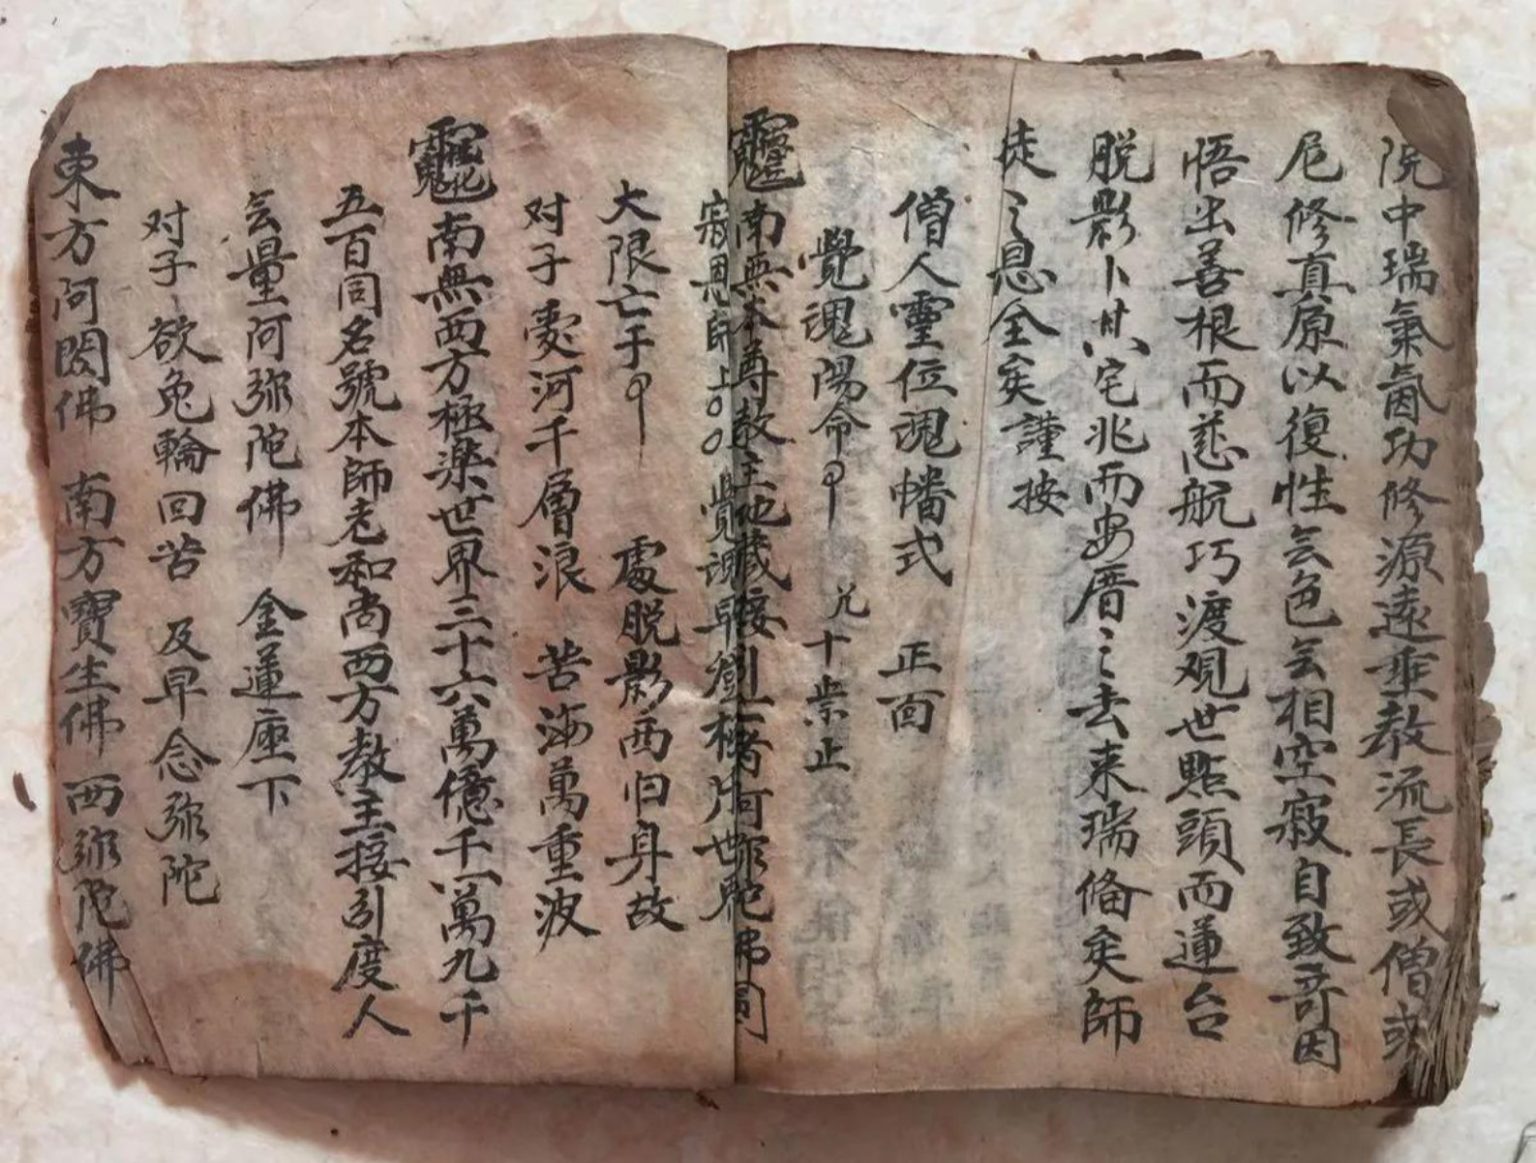 院中瑞氣氤功修源遠垂教流長或僧或
尼修真原以復性无色无相空寂自致奇因
悟出善根而慈航巧渡观世點頭而蓮台
脱影卜其宅兆而安厝之去来瑞俻矣師
徒之恩全矣謹按
僧人靈位魂幡式 正面
覺魂陽命 十 止
南無本尊教主地藏接引 阿弥陀佛同
寂恩師上〇〇覺 早 世
大限亡于 處脱影西归身故
对子憂河千層浪 苦海萬重波
南無西方極楽世界三十六萬億千一萬九千
五百同名號本師老和尚西方教主接引度人
无量阿弥陀佛 金蓮座下
对子欲免輪回苦 及早念弥陀
東方阿閦佛 南方寶生佛 西弥陀佛